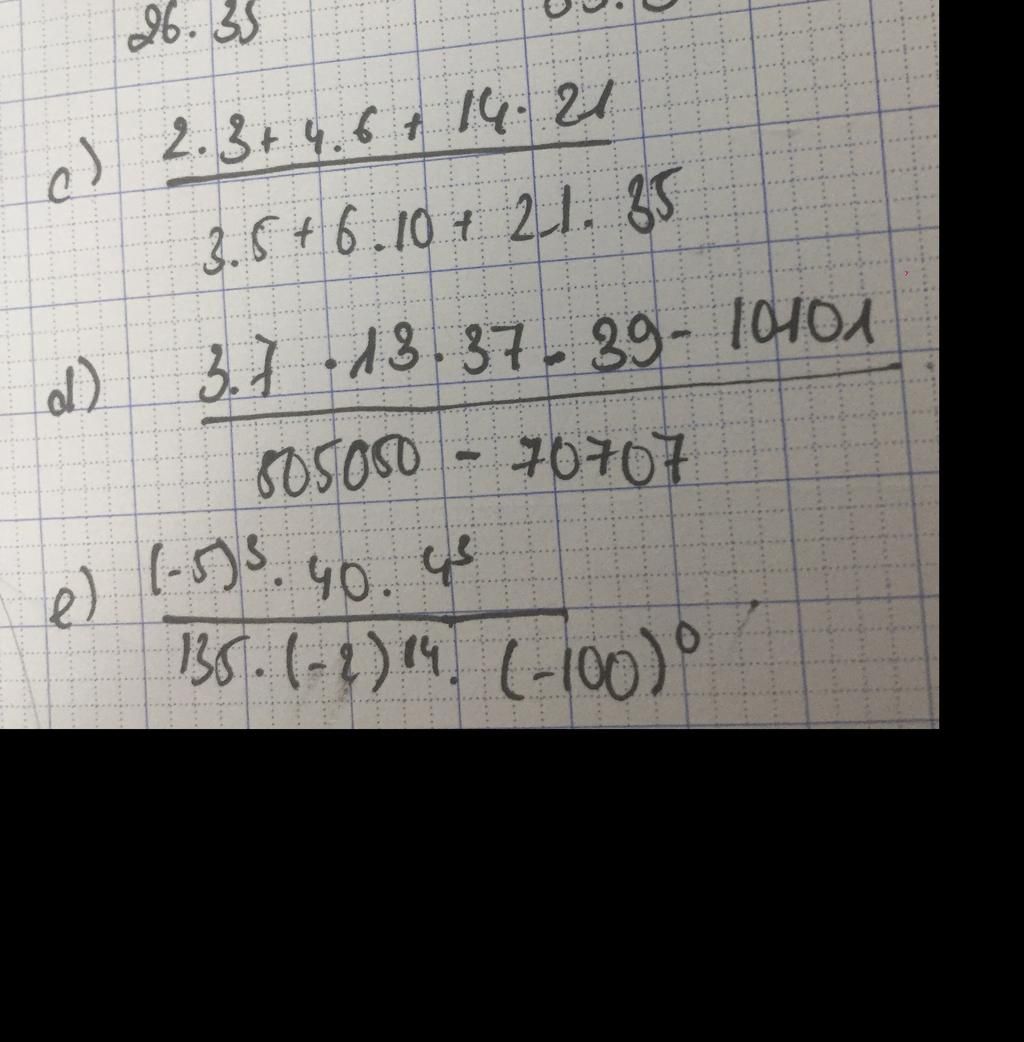 26.35
c) 2.3+4.6+14.21
3.5+6.10+21.35
d) 3.7.13.37.39-10101
505050-70707
e) (-5)³.40.4³
135.(-2)¹⁴.(-100)⁰